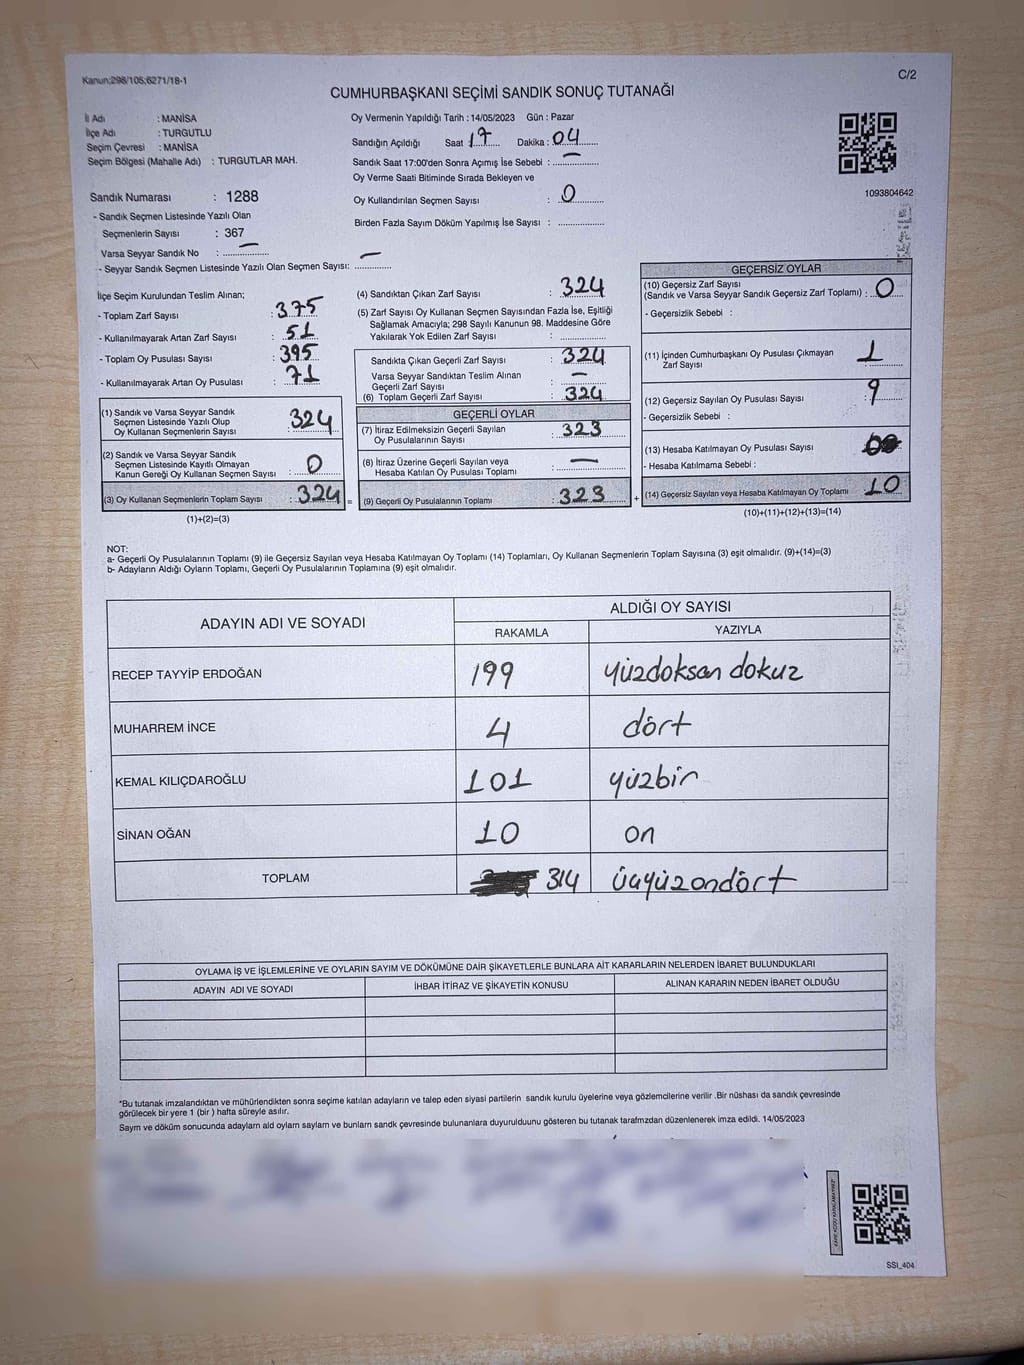 Kanun:298/105;6271/18-1
C/2
CUMHURBAŞKANI SEÇİMİ SANDIK SONUÇ TUTANAĞI
İl Adı : MANİSA
İlçe Adı : TURGUTLU
Seçim Çevresi : MANİSA
Seçim Bölgesi (Mahalle Adı) : TURGUTLAR MAH.
Sandık Numarası : 1288
- Sandık Seçmen Listesinde Yazılı Olan
Seçmenlerin Sayısı : 367
Varsa Seyyar Sandık No : —
- Seyyar Sandık Seçmen Listesinde Yazılı Olan Seçmen Sayısı: —
Oy Vermenin Yapıldığı Tarih : 14/05/2023 Gün : Pazar
Sandığın Açıldığı Saat 17 Dakika : 04
Sandık Saat 17:00'den Sonra Açımış İse Sebebi : —
Oy Verme Saati Bitiminde Sırada Bekleyen ve
Oy Kullandırılan Seçmen Sayısı : 0
Birden Fazla Sayım Döküm Yapılmış İse Sayısı :
1093804642
İlçe Seçim Kurulundan Teslim Alınan;
- Toplam Zarf Sayısı : 375
- Kullanılmayarak Artan Zarf Sayısı : 51
- Toplam Oy Pusulası Sayısı : 395
- Kullanılmayarak Artan Oy Pusulası : 71
(1) Sandık ve Varsa Seyyar Sandık
Seçmen Listesinde Yazılı Olup
Oy Kullanan Seçmenlerin Sayısı : 324
(2) Sandık ve Varsa Seyyar Sandık
Seçmen Listesinde Kayıtlı Olmayan
Kanun Gereği Oy Kullanan Seçmen Sayısı : 0
(3) Oy Kullanan Seçmenlerin Toplam Sayısı : 324
(1)+(2)=(3)
(4) Sandıktan Çıkan Zarf Sayısı : 324
(5) Zarf Sayısı Oy Kullanan Seçmen Sayısından Fazla İse, Eşitliği
Sağlamak Amacıyla; 298 Sayılı Kanunun 98. Maddesine Göre
Yakılarak Yok Edilen Zarf Sayısı :
Sandıkta Çıkan Geçerli Zarf Sayısı : 324
Varsa Seyyar Sandıktan Teslim Alınan
Geçerli Zarf Sayısı : —
(6) Toplam Geçerli Zarf Sayısı : 324
GEÇERLİ OYLAR
(7) İtiraz Edilmeksizin Geçerli Sayılan
Oy Pusulalarının Sayısı : 323
(8) İtiraz Üzerine Geçerli Sayılan veya
Hesaba Katılan Oy Pusulası Toplamı : —
= (9) Geçerli Oy Pusulalarının Toplamı : 323
GEÇERSİZ OYLAR
(10) Geçersiz Zarf Sayısı
(Sandık ve Varsa Seyyar Sandık Geçersiz Zarf Toplamı) : 0
- Geçersizlik Sebebi :
(11) İçinden Cumhurbaşkanı Oy Pusulası Çıkmayan
Zarf Sayısı : 1
(12) Geçersiz Sayılan Oy Pusulası Sayısı : 9
- Geçersizlik Sebebi :
(13) Hesaba Katılmayan Oy Pusulası Sayısı :
- Hesaba Katılmama Sebebi :
+ (14) Geçersiz Sayılan veya Hesaba Katılmayan Oy Toplamı : 10
(10)+(11)+(12)+(13)=(14)
NOT:
a- Geçerli Oy Pusulalarının Toplamı (9) ile Geçersiz Sayılan veya Hesaba Katılmayan Oy Toplamı (14) Toplamları, Oy Kullanan Seçmenlerin Toplam Sayısına (3) eşit olmalıdır. (9)+(14)=(3)
b- Adayların Aldığı Oyların Toplamı, Geçerli Oy Pusulalarının Toplamına (9) eşit olmalıdır.
ADAYIN ADI VE SOYADI
ALDIĞI OY SAYISI
RAKAMLA YAZIYLA
RECEP TAYYİP ERDOĞAN 199 yüzdoksan dokuz
MUHARREM İNCE 4 dört
KEMAL KILIÇDAROĞLU 101 yüzbir
SİNAN OĞAN 10 on
TOPLAM 314 üçyüzondört
OYLAMA İŞ VE İŞLEMLERİNE VE OYLARIN SAYIM VE DÖKÜMÜNE DAİR ŞİKAYETLERLE BUNLARA AİT KARARLARIN NELERDEN İBARET BULUNDUKLARI
ADAYIN ADI VE SOYADI İHBAR İTİRAZ VE ŞİKAYETİN KONUSU ALINAN KARARIN NEDEN İBARET OLDUĞU
*Bu tutanak imzalandıktan ve mühürlendikten sonra seçime katılan adayların ve talep eden siyasi partilerin sandık kurulu üyelerine veya gözlemcilerine verilir .Bir nüshası da sandık çevresinde
görülecek bir yere 1 (bir ) hafta süreyle asılır.
Sayım ve döküm sonucunda adaylarn ald oylarn saylarn ve bunlarn sandk çevresinde bulunanlara duyurulduunu gösteren bu tutanak tarafmzdan düzenlenerek imza edildi. 14/05/2023
SSI_404